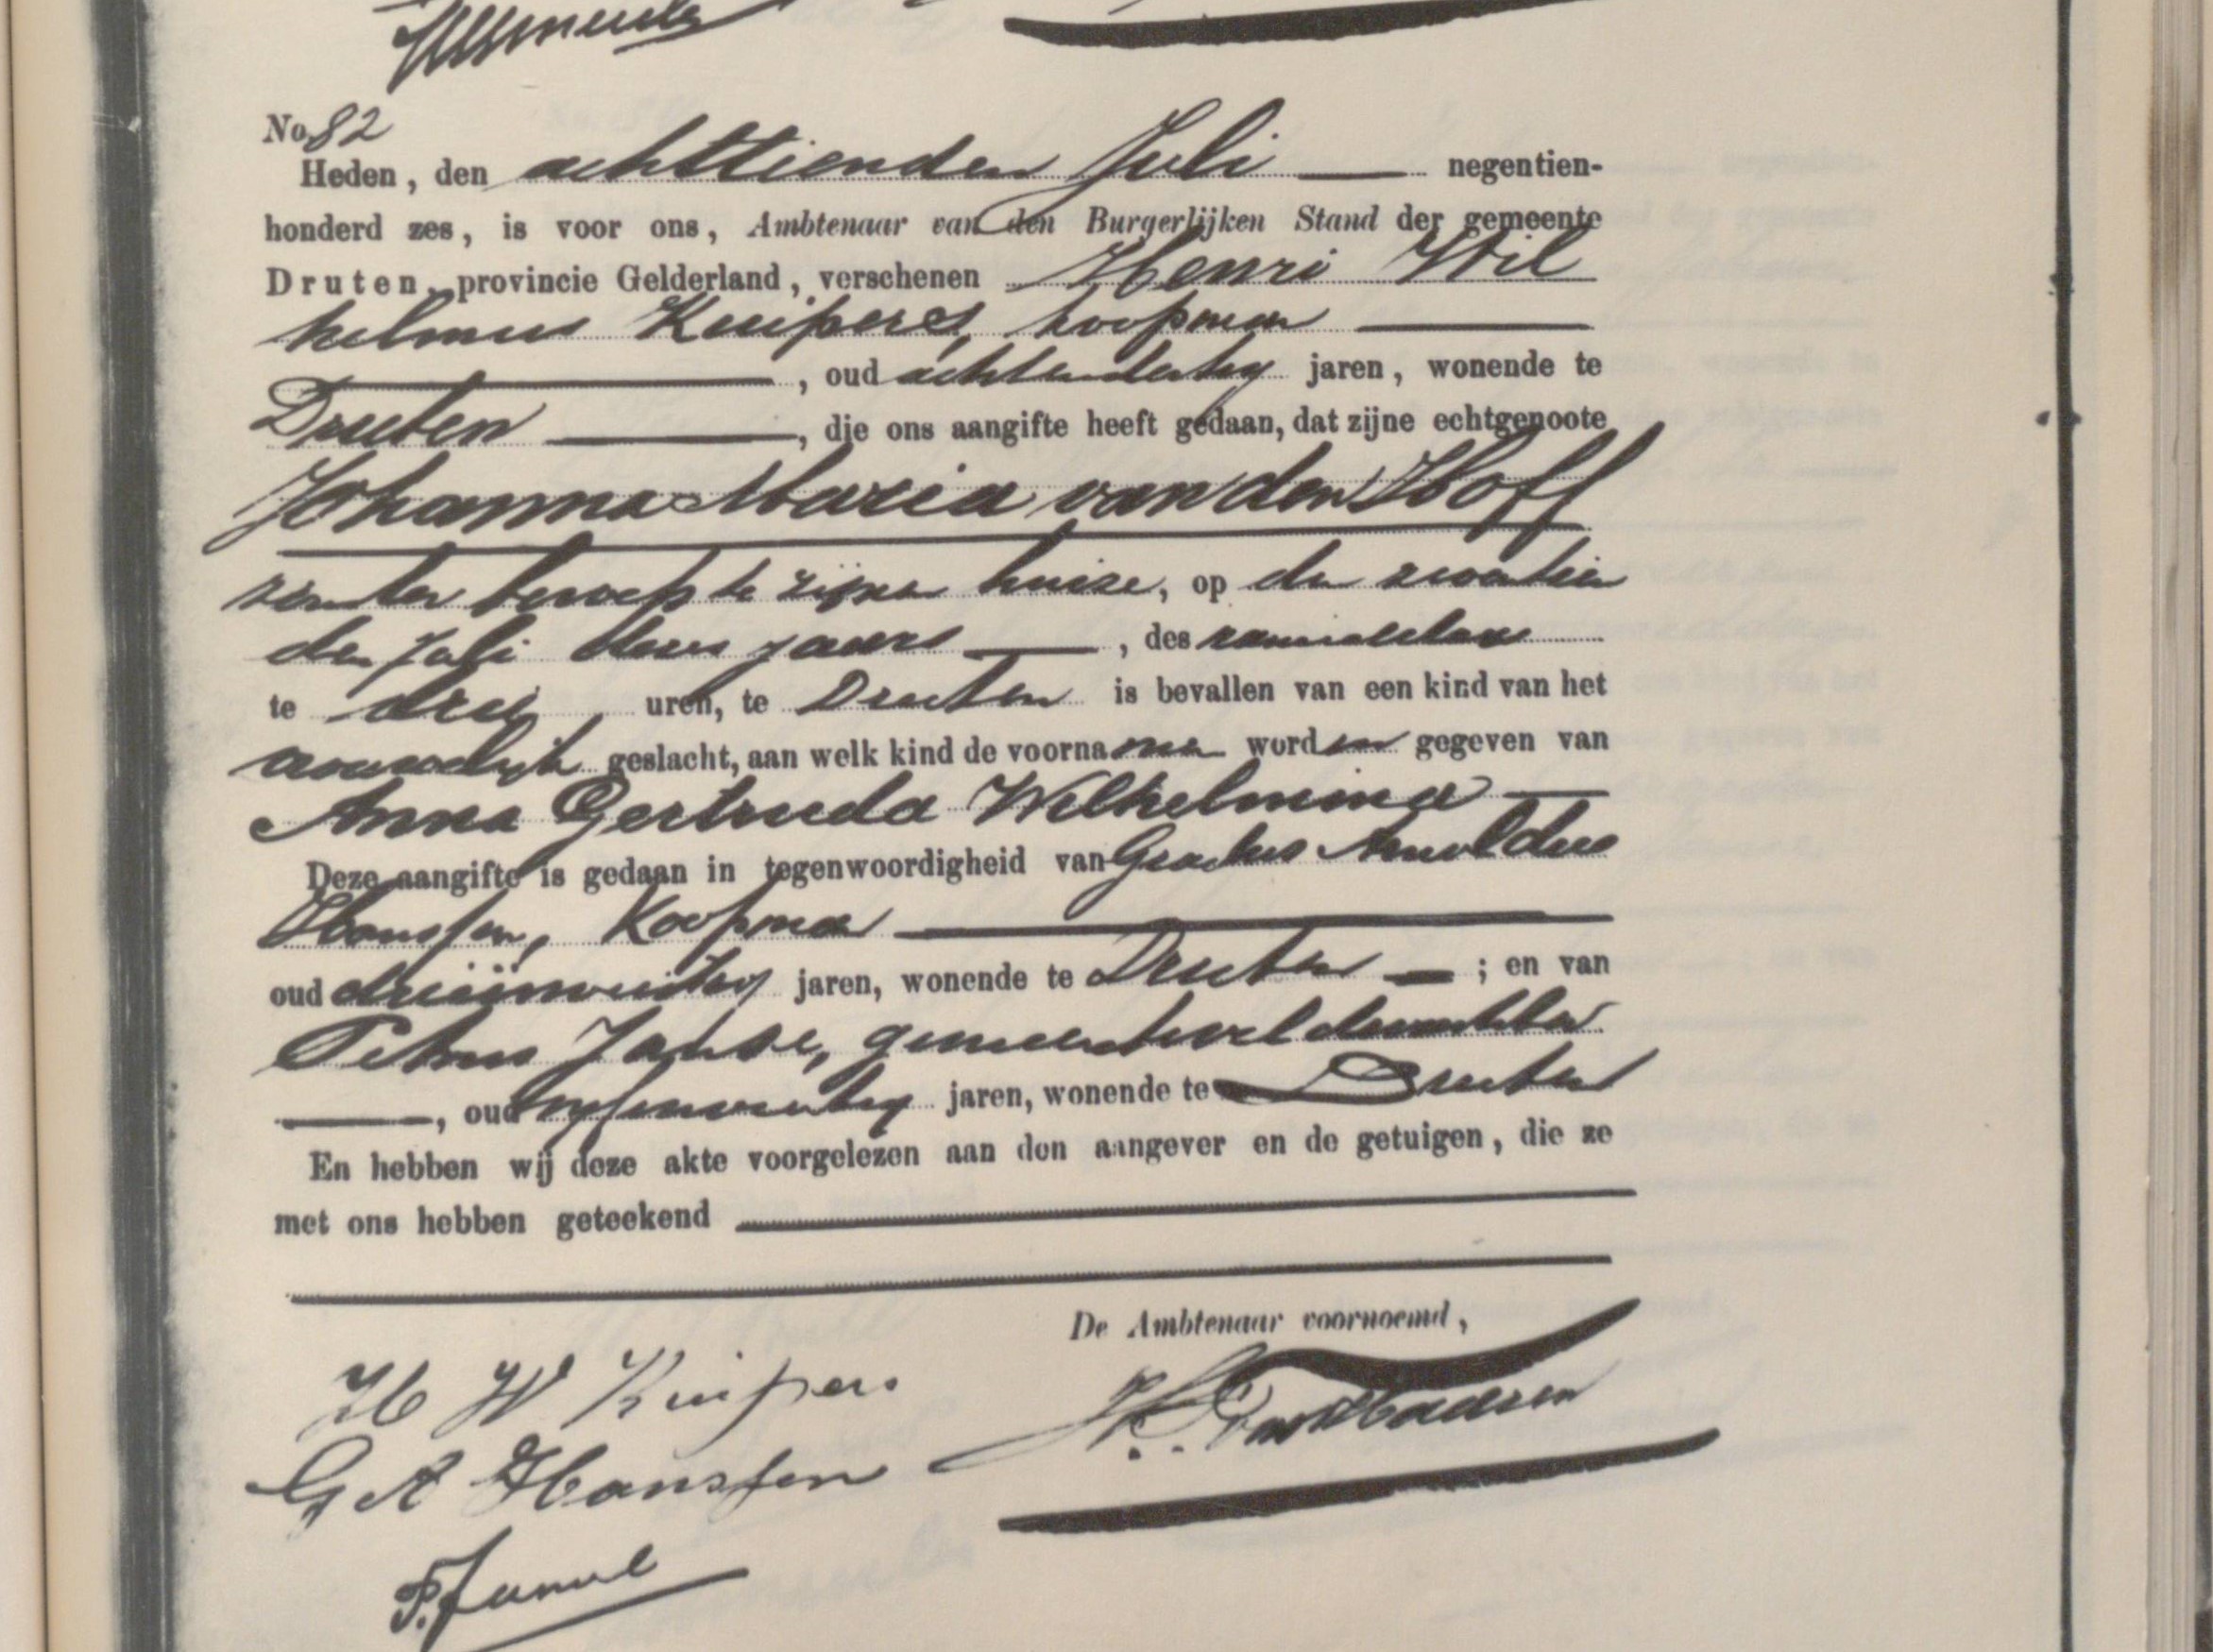 No. 82
Heden, den achttienden Juli negentien-
honderd zes, is voor ons, Ambtenaar van den Burgerlijken Stand der gemeente
Druten, provincie Gelderland, verschenen Henri Wil
helmus Kuipers, koopman
, oud achtendertig jaren, wonende te
Druten , die ons aangifte heeft gedaan, dat zijne echtgenoote
Johanna Maria van den Hoff
zonder beroep te zijnen huize, op den zeventien
den Juli dezes jaars , des namiddags
te drie uren, te Druten is bevallen van een kind van het
vrouwelijk geslacht, aan welk kind de voornamen worden gegeven van
Anna Gertruda Wilhelmina
Deze aangifte is gedaan in tegenwoordigheid van Gradus Arnoldus
Hanssen, Koopman
oud drieënveertig jaren, wonende te Druten ; en van
Petrus Janse, gemeenteveldwachter
, oud jaren, wonende te Druten
En hebben wij deze akte voorgelezen aan den aangever en de getuigen, die ze
met ons hebben geteekend
De Ambtenaar voornoemd,
H W Kuipers
G A Hanssen
P. Janse